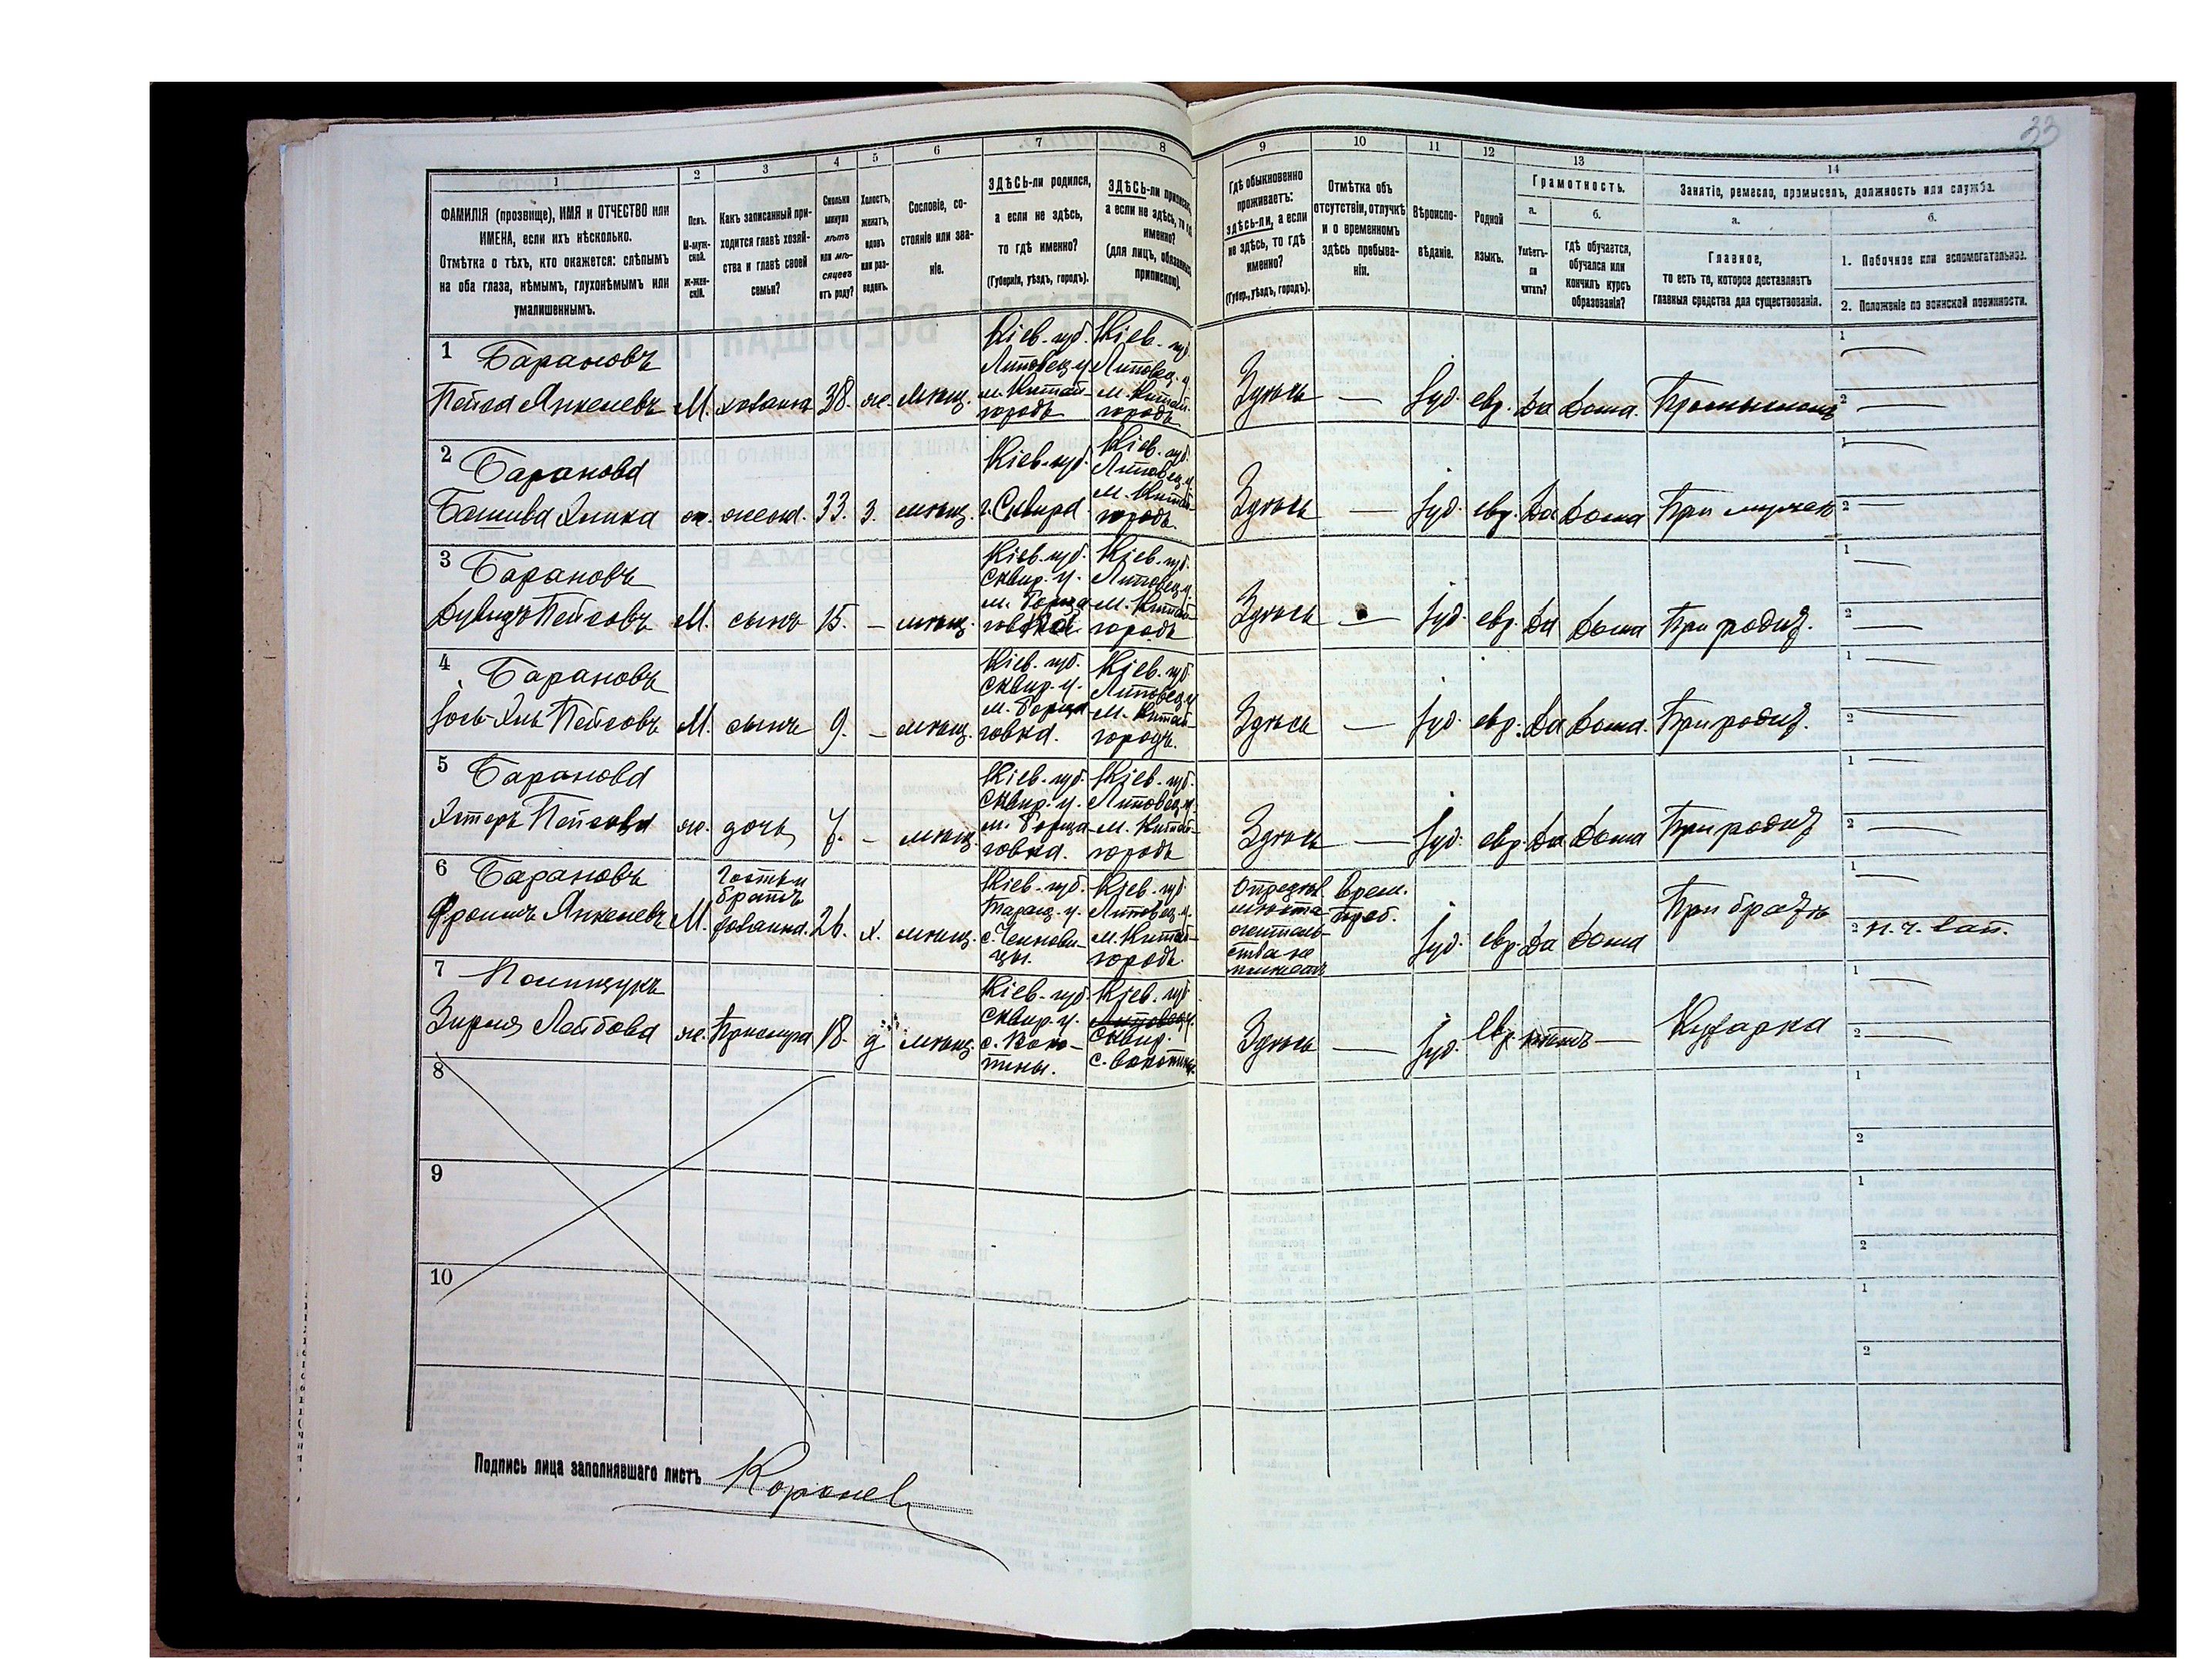 33
1 2 3 4 5 6 7 8 9 10 11 12 13 14
ФАМИЛІЯ (прозвище), ИМЯ и ОТЧЕСТВО или
ИМЕНА, если ихъ нѣсколько.
Отмѣтка о тѣхъ, кто окажется: слѣпымъ
на оба глаза, нѣмымъ, глухонѣмымъ или
умалишеннымъ.
Полъ.
М-муж-
ской.
Ж-жен-
скій.
Какъ записанный при-
ходится главѣ хозяй-
ства и главѣ своей
семьи?
Сколько
минуло
лѣтъ
или мѣ-
сяцевъ
отъ роду?
Холостъ,
женатъ,
вдовъ
или раз-
веденъ.
Сословіе, со-
стояніе или зва-
ніе.
ЗДѢСЬ-ли родился,
а если не здѣсь,
то гдѣ именно?
(Губернія, уѣздъ, городъ).
ЗДѢСЬ-ли приписанъ,
а если не здѣсь, то гдѣ
именно?
(для лицъ, обязанныхъ
припиской).
Гдѣ обыкновенно
проживаетъ:
здѣсь-ли, а если
не здѣсь, то гдѣ
именно?
(Губер., уѣздъ, городъ).
Отмѣтка объ
отсутствіи, отлучкѣ
и о временномъ
здѣсь пребыва-
ніи.
Вѣроиспо-
вѣданіе.
Родной
языкъ.
Грамотность.
а.
Умѣетъ-
ли
читать?
б.
Гдѣ обучается,
обучался или
кончилъ курсъ
образованія?
Занятіе, ремесло, промыселъ, должность или служба.
а.
Главное,
то есть то, которое доставляетъ
главныя средства для существованія.
б.
1. Побочное или вспомогательное.
2. Положеніе по воинской повинности.
1 Барановъ
Пейса Янкелевъ
М. хозяинъ 38. ж. мѣщ.
Кіев. губ.
Липовец. у.
м. Китай-
городъ
Кіев. губ.
Липовец. у.
м. Китай-
городъ
Здѣсь — Іуд. евр. Да Дома.
1 —
2 —
2 Баранова
ж. жена. 33. з. мѣщ.
Кіев. губ.
г. Сквира
Кіев. губ.
Липовец. у.
м. Китай-
городъ.
Здѣсь — Іуд. евр. Да Дома При мужѣ
1 —
2 —
3 Барановъ
Дувидъ Пейсовъ
М. сынъ 15. — мѣщ.
Кіев. губ.
Сквир. у.
м. Борща-
говка.
Кіев. губ.
Липовец. у.
м. Китай-
городъ
Здѣсь — Іуд. евр. Да Дома При родит.
1 —
2 —
4 Барановъ
Пейсовъ
М. сынъ 9. — мѣщ.
Кіев. губ.
Сквир. у.
м. Борща-
говка.
Кіев. губ.
Липовец. у.
м. Китай-
городъ.
Здѣсь — Іуд. евр. Да Дома. При родит.
1 —
2 —
5 Баранова
Хстеръ Пейсова
ж. дочь 7. — мѣщ.
Кіев. губ.
Сквир. у.
м. Борща-
говка.
Кіев. губ.
Липовец. у.
м. Китай-
городъ
Здѣсь — Іуд. евр. Да Дома При родит
1 —
2 —
6 Барановъ
Фроимъ Янкелевъ
М.
Гость и
братъ
хозяина.
26. х. мѣщ.
Кіев. губ.
Таращ. у.
Кіев. губ.
Липовец. у.
м. Китай-
городъ.
Опредѣл.
мѣста
житель-
ства не
имѣетъ
Врем.
преб.
Іуд. евр. Да Дома При братѣ
1 —
2 н. ч. зап.
7 Полищукъ
Лейбова
ж. Прислуга 18. д. мѣщ.
Кіев. губ.
Сквир. у.
Кіев. губ.
Липовец. у.
Сквир.
Здѣсь — Іуд. Евр. нѣтъ — Кухарка
1 —
2 —
8 1
2
9 1
2
10 1
2
Подпись лица заполнявшаго листъ